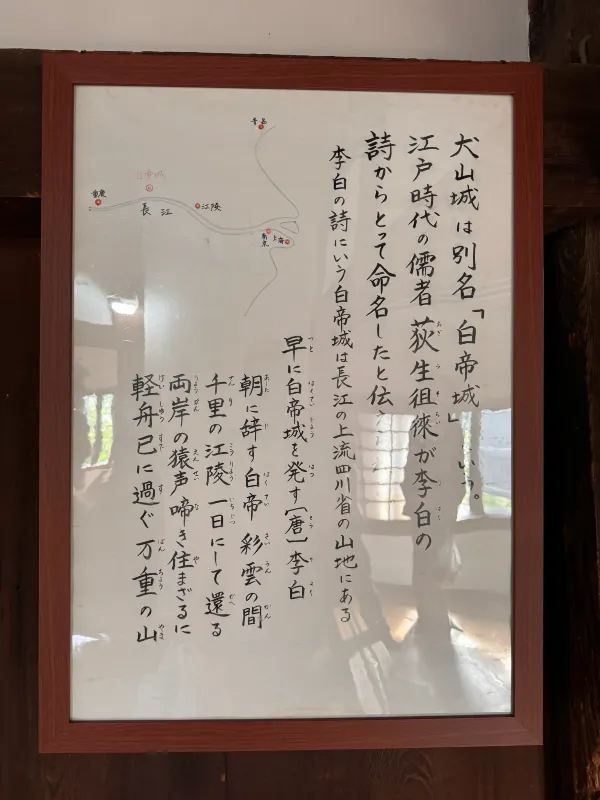 犬山城は別名「白帝城」いう。
江戸時代の儒者 荻生徂徠が李白の
詩からとって命名したと伝
李白の詩にいう白帝城は長江の上流四川省の山地にある
早に白帝城を発す[唐]李白
朝に辞す白帝 彩雲の間
千里の江陵 一日にして還る
両岸の猿声 啼き住まざるに
軽舟已に過ぐ 万重の山
青島
白帝城
重慶
長江
江陵
南京
上海